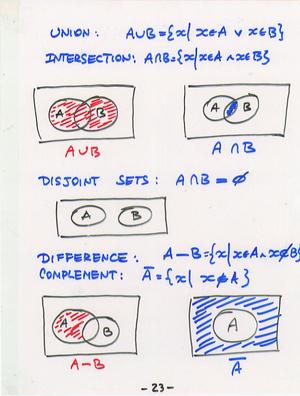 UNION: A∪B={x| x∈A ∨ x∈B}
INTERSECTION: A∩B={x|x∈A ∧ x∈B}
A B
A B
A∪B
A∩B
DISJOINT SETS: A∩B=∅
A B
DIFFERENCE: A-B={x|x∈A ∧ x∉B}
COMPLEMENT: Ā={x| x∉A}
A B
A
A-B
Ā
-23-